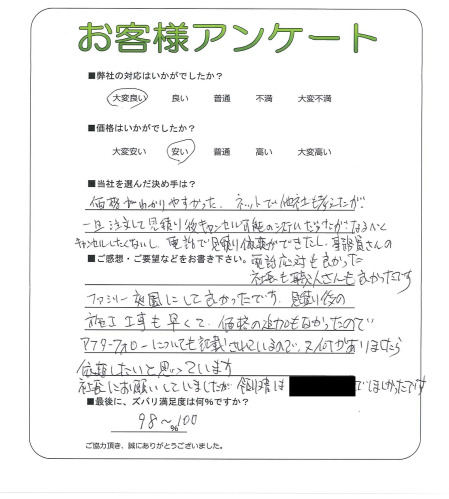 お客様アンケート
■弊社の対応はいかがでしたか？
大変良い 良い 普通 不満 大変不満
■価格はいかがでしたか？
大変安い 安い 普通 高い 大変高い
■当社を選んだ決め手は？
価格がわかりやすかった、ネットで他社も考えたが
一旦注文して見積り後キャンセル可能のシステムだったが、なるべく
キャンセルしたくないし、電話で見積り依頼ができたし、事務員さんの
■ご感想・ご要望などをお書き下さい。電話応対も良かった
社長も職人さんも良かったです
ファミリー庭園にして良かったです。見積り後の
施工工事も早くて、価格の追加もなかったので
アフターフォローについても記載されているので、又何かありましたら
依頼したいと思っています
社長にお願いしていましたが領収書は でほしかったです
■最後に、ズバリ満足度は何%ですか？
98～100
%
ご協力頂き、誠にありがとうございました。